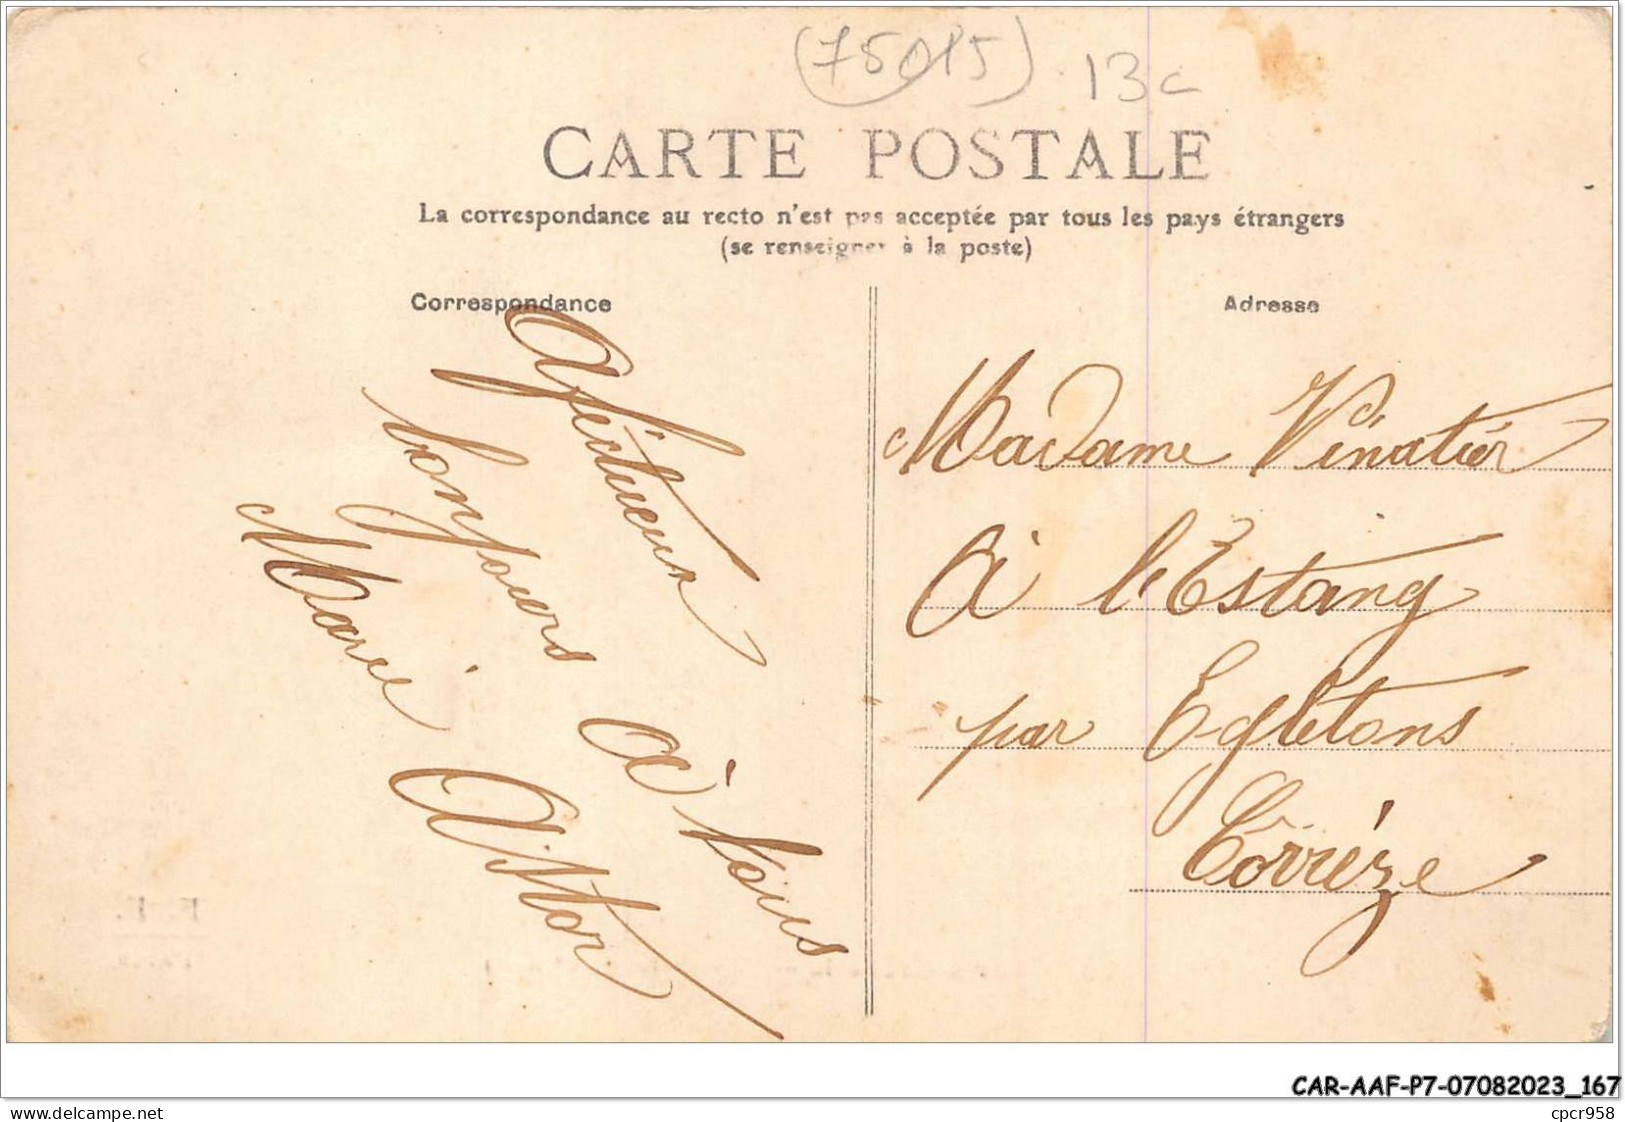 (75015) 13c
CARTE POSTALE
La correspondance au recto n'est pas acceptée par tous les pays étrangers
(se renseigner à la poste)
Correspondance
Adresse
Afectueux
bonjours à tous
Marie
Madame Vinatier
A l'Estang
par Egletons
Corrèze
CAR-AAF-P7-07082023_167
www.delcampe.net
cpcr958